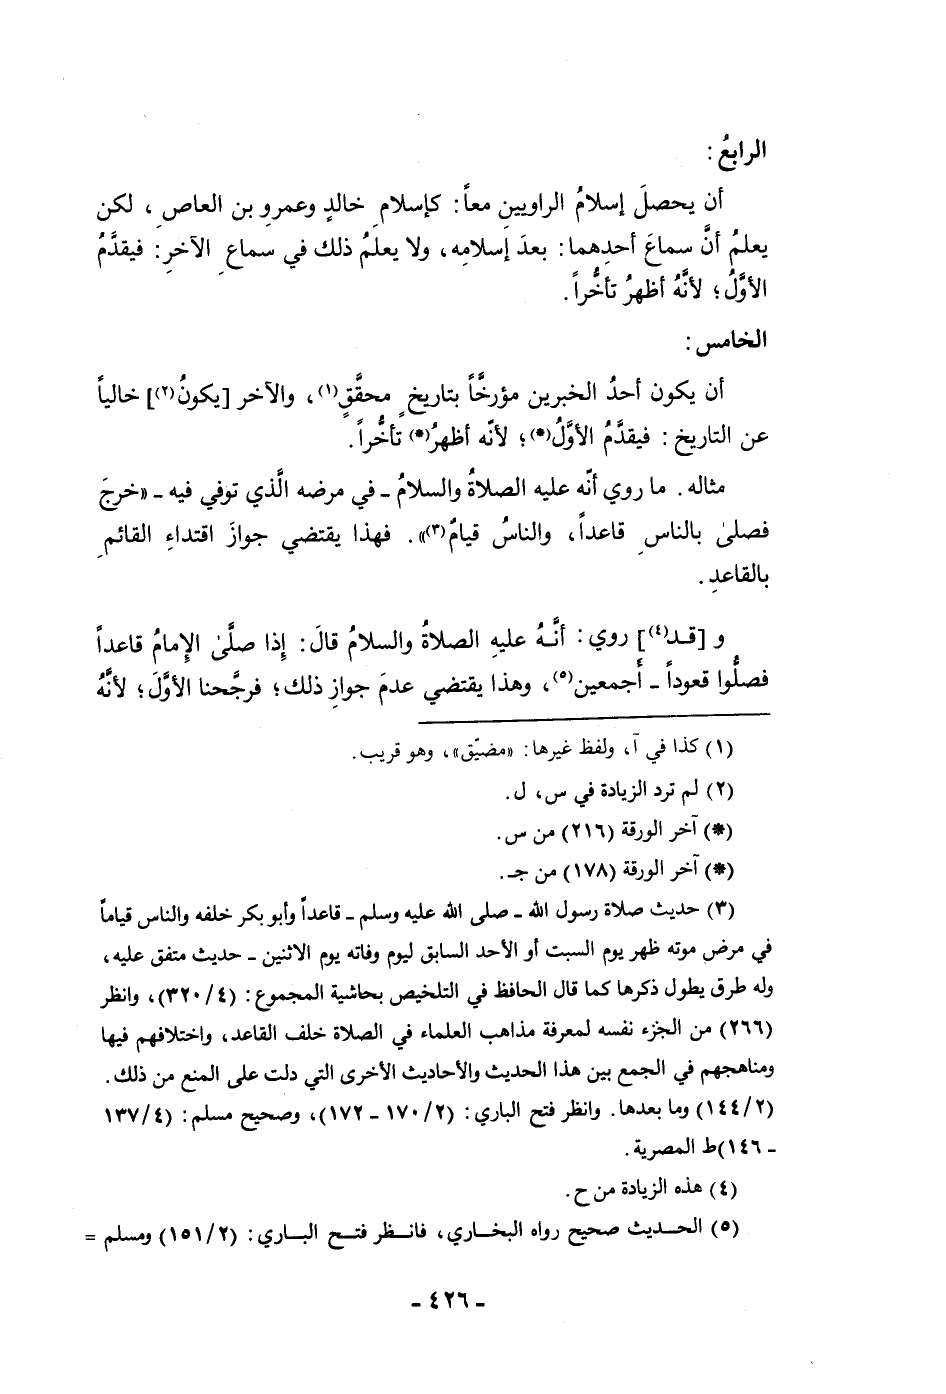 الرابعُ :
أن يحصلَ إسلامُ الراويينِ معاً : كإسلامِ خالدٍ وعمرو بن العاصِ ، لكن
يعلمُ أنَّ سماعَ أحدِهما : بعدَ إسلامِه ، ولا يعلمُ ذلك في سماعِ الآخرِ : فيقدَّمُ
الأوَّلُ ؛ لأنَّهُ أظهرُ تأخُّراً .
الخامس :
أن يكون أحدُ الخبرين مؤرخَّاً بتاريخٍ محقَّقٍ(١) ، والآخر [يكونُ(٢)] خالياً
عن التاريخ : فيقدَّمُ الأوَّلُ(*) ؛ لأنّه أظهرُ(*) تأخُّراً .
مثاله . ما روي أنّه عليه الصلاةُ والسلامُ ـ في مرضه الَّذي توفي فيه ـ «خرجَ
فصلىٰ بالناسِ قاعداً ، والناسُ قيامٌ(٣)» . فهذا يقتضي جوازَ اقتداءِ القائمِ
بالقاعدِ .
و [قـد(٤)] روي : أنَّـهُ عليهِ الصلاةُ والسلامُ قالَ : إِذا صلَّىٰ الإِمامُ قاعداً
فصلُّوا قعوداً ـ أَجمعين(٥) ، وهذا يقتضي عدمَ جوازِ ذلك ؛ فرجَّحنا الأوَّلَ ؛ لأنَّهُ
(١) كذا في آ ، ولفظ غيرها : «مضيّق» ، وهو قريب .
(٢) لم ترد الزيادة في س ، ل .
(*) آخر الورقة (٢١٦) من س .
(*) آخر الورقة (١٧٨) من جـ .
(٣) حديث صلاة رسول الله ـ صلى الله عليه وسلم ـ قاعداً وأبو بكر خلفه والناس قياماً
في مرض موته ظهر يوم السبت أو الأحد السابق ليوم وفاته يوم الاثنين ـ حديث متفق عليه ،
وله طرق يطول ذكرها كما قال الحافظ في التلخيص بحاشية المجموع : (٣٢٠/٤) ، وانظر
(٢٦٦) من الجزء نفسه لمعرفة مذاهب العلماء في الصلاة خلف القاعد ، واختلافهم فيها
ومناهجهم في الجمع بين هذا الحديث والأحاديث الأخرى التي دلت على المنع من ذلك .
(١٤٤/٢) وما بعدها . وانظر فتح الباري : (١٧٠/٢ ـ ١٧٢) ، وصحيح مسلم : (١٣٧/٤
ـ ١٤٦)ط المصرية .
(٤) هذه الزيادة من ح .
(٥) الحـديث صحيح رواه البخـاري ، فانـظر فتـح البـاري : (١٥١/٢) ومسلم =
ـ ٤٢٦ ـ